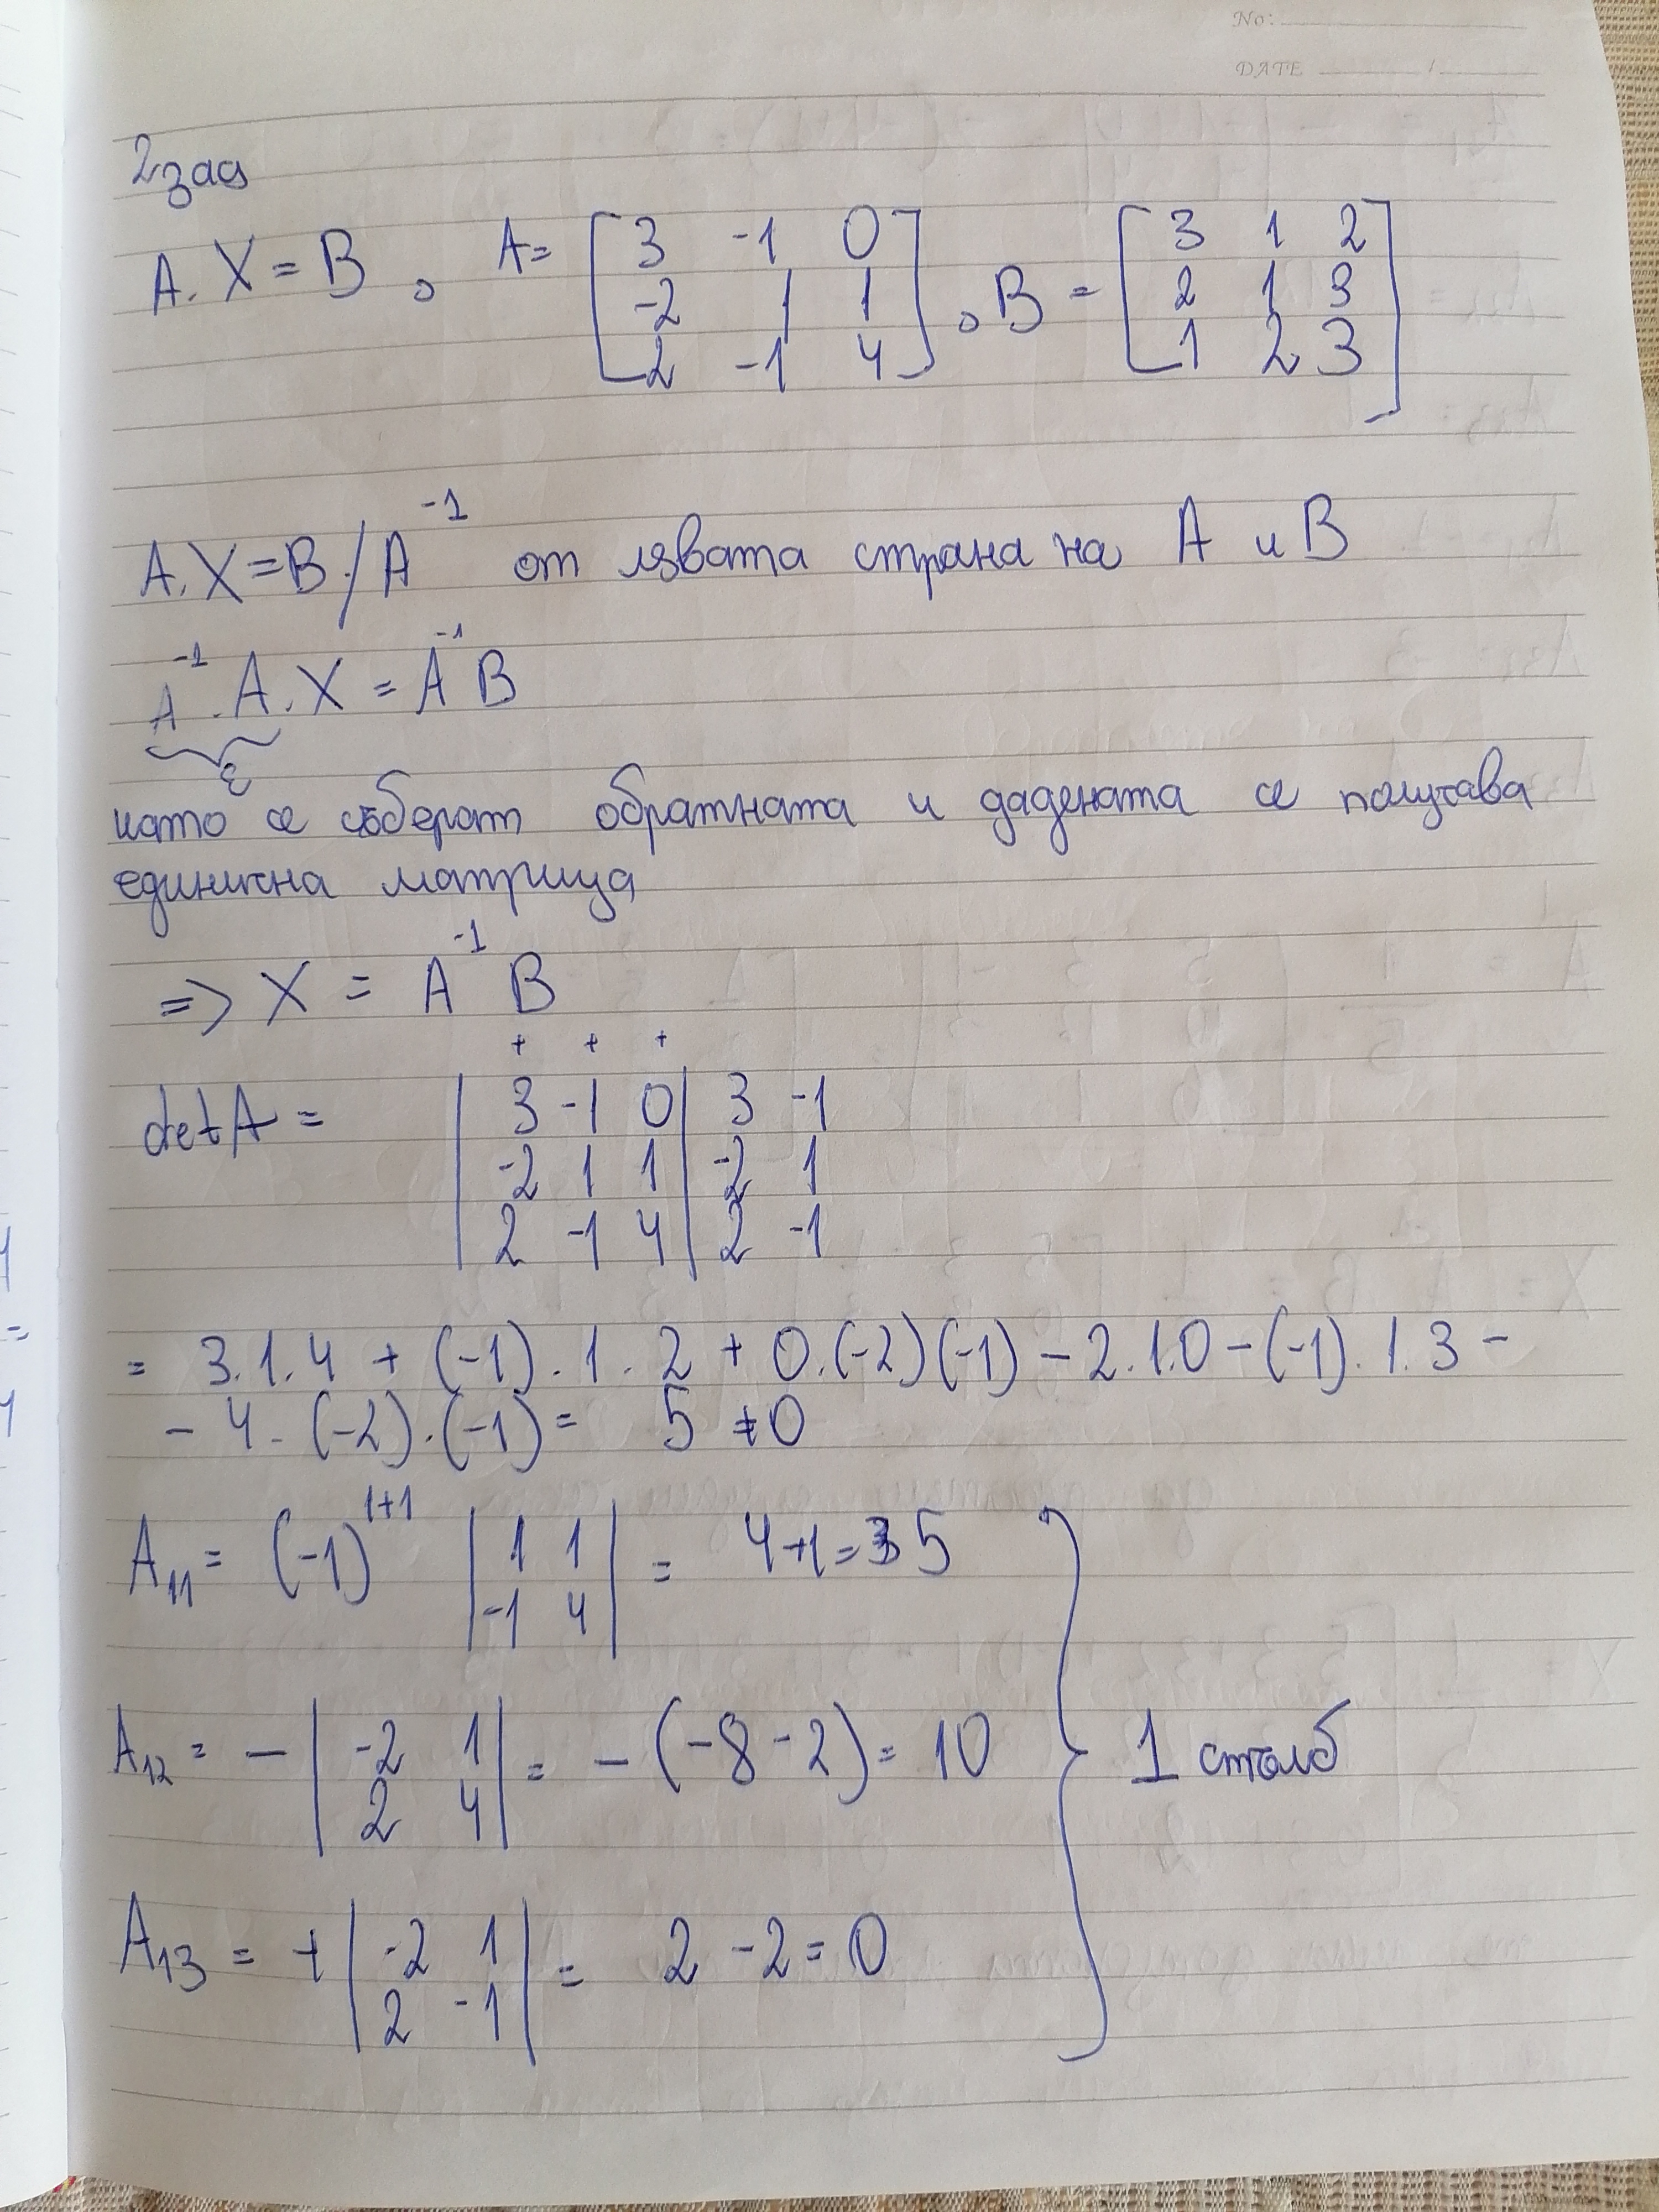 No:
DATE /
2зад
A.X=B, A= [3 -1 0
-2 1 1
2 -1 4], B= [3 1 2
2 1 3
1 2 3]
A.X=B./A⁻¹ от лявата страна на A и B
A⁻¹.A.X = A⁻¹B
E
като се съберат обратната и дадената се получава
единична матрица
=> X = A⁻¹B
+ + +
detA = | 3 -1 0 | 3 -1
| -2 1 1 | -2 1
| 2 -1 4 | 2 -1
= 3.1.4 + (-1).1.2 + 0.(-2)(-1) - 2.1.0 - (-1).1.3 -
- 4.(-2).(-1) = 5 ≠0
A₁₁ = (-1)¹⁺¹ | 1 1 | = 4+1= 5
| -1 4 |
A₁₂ = - | -2 1 | = - (-8-2) = 10
| 2 4 |
1 столб
A₁₃ = + | -2 1 | = 2 - 2 = 0
| 2 -1 |